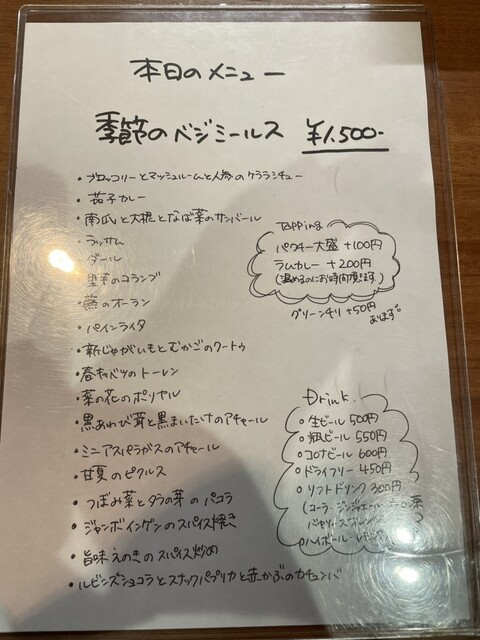 本日のメニュー
季節のベジミールス ¥1,500-
・ブロッコリーとマッシュルームと人参のケララシチュー
・茄子カレー
・南瓜と大根となば菜のサンバール
・ラッサム
・ダール
・里芋のコランブ
・蕪のオーラン
・パインライタ
・新じゃがいもとむかごのクートゥ
・春キャベツのトーレン
・菜の花のポリヤル
・黒あわび茸と黒まいたけのアチャール
・ミニアスパラガスのアチャール
・甘夏のピクルス
・つぼみ菜とタラの芽のパコラ
・ジャンボインゲンのスパイス焼き
・旨味えのきのスパイス炒め
・ルビンズショコラとスナックパプリカと赤かぶのカチュンバ
Topping
パクチー大盛 +100円
ラムカレー +200円
(温めるのにお時間頂きます)
グリーンチリ +50円
あります。
Drink.
○生ビール 500円
○瓶ビール 550円
○コロナビール 600円
○ドライフリー 450円
○ソフトドリンク 300円
(コーラ・ジンジャエール
○ハイボール